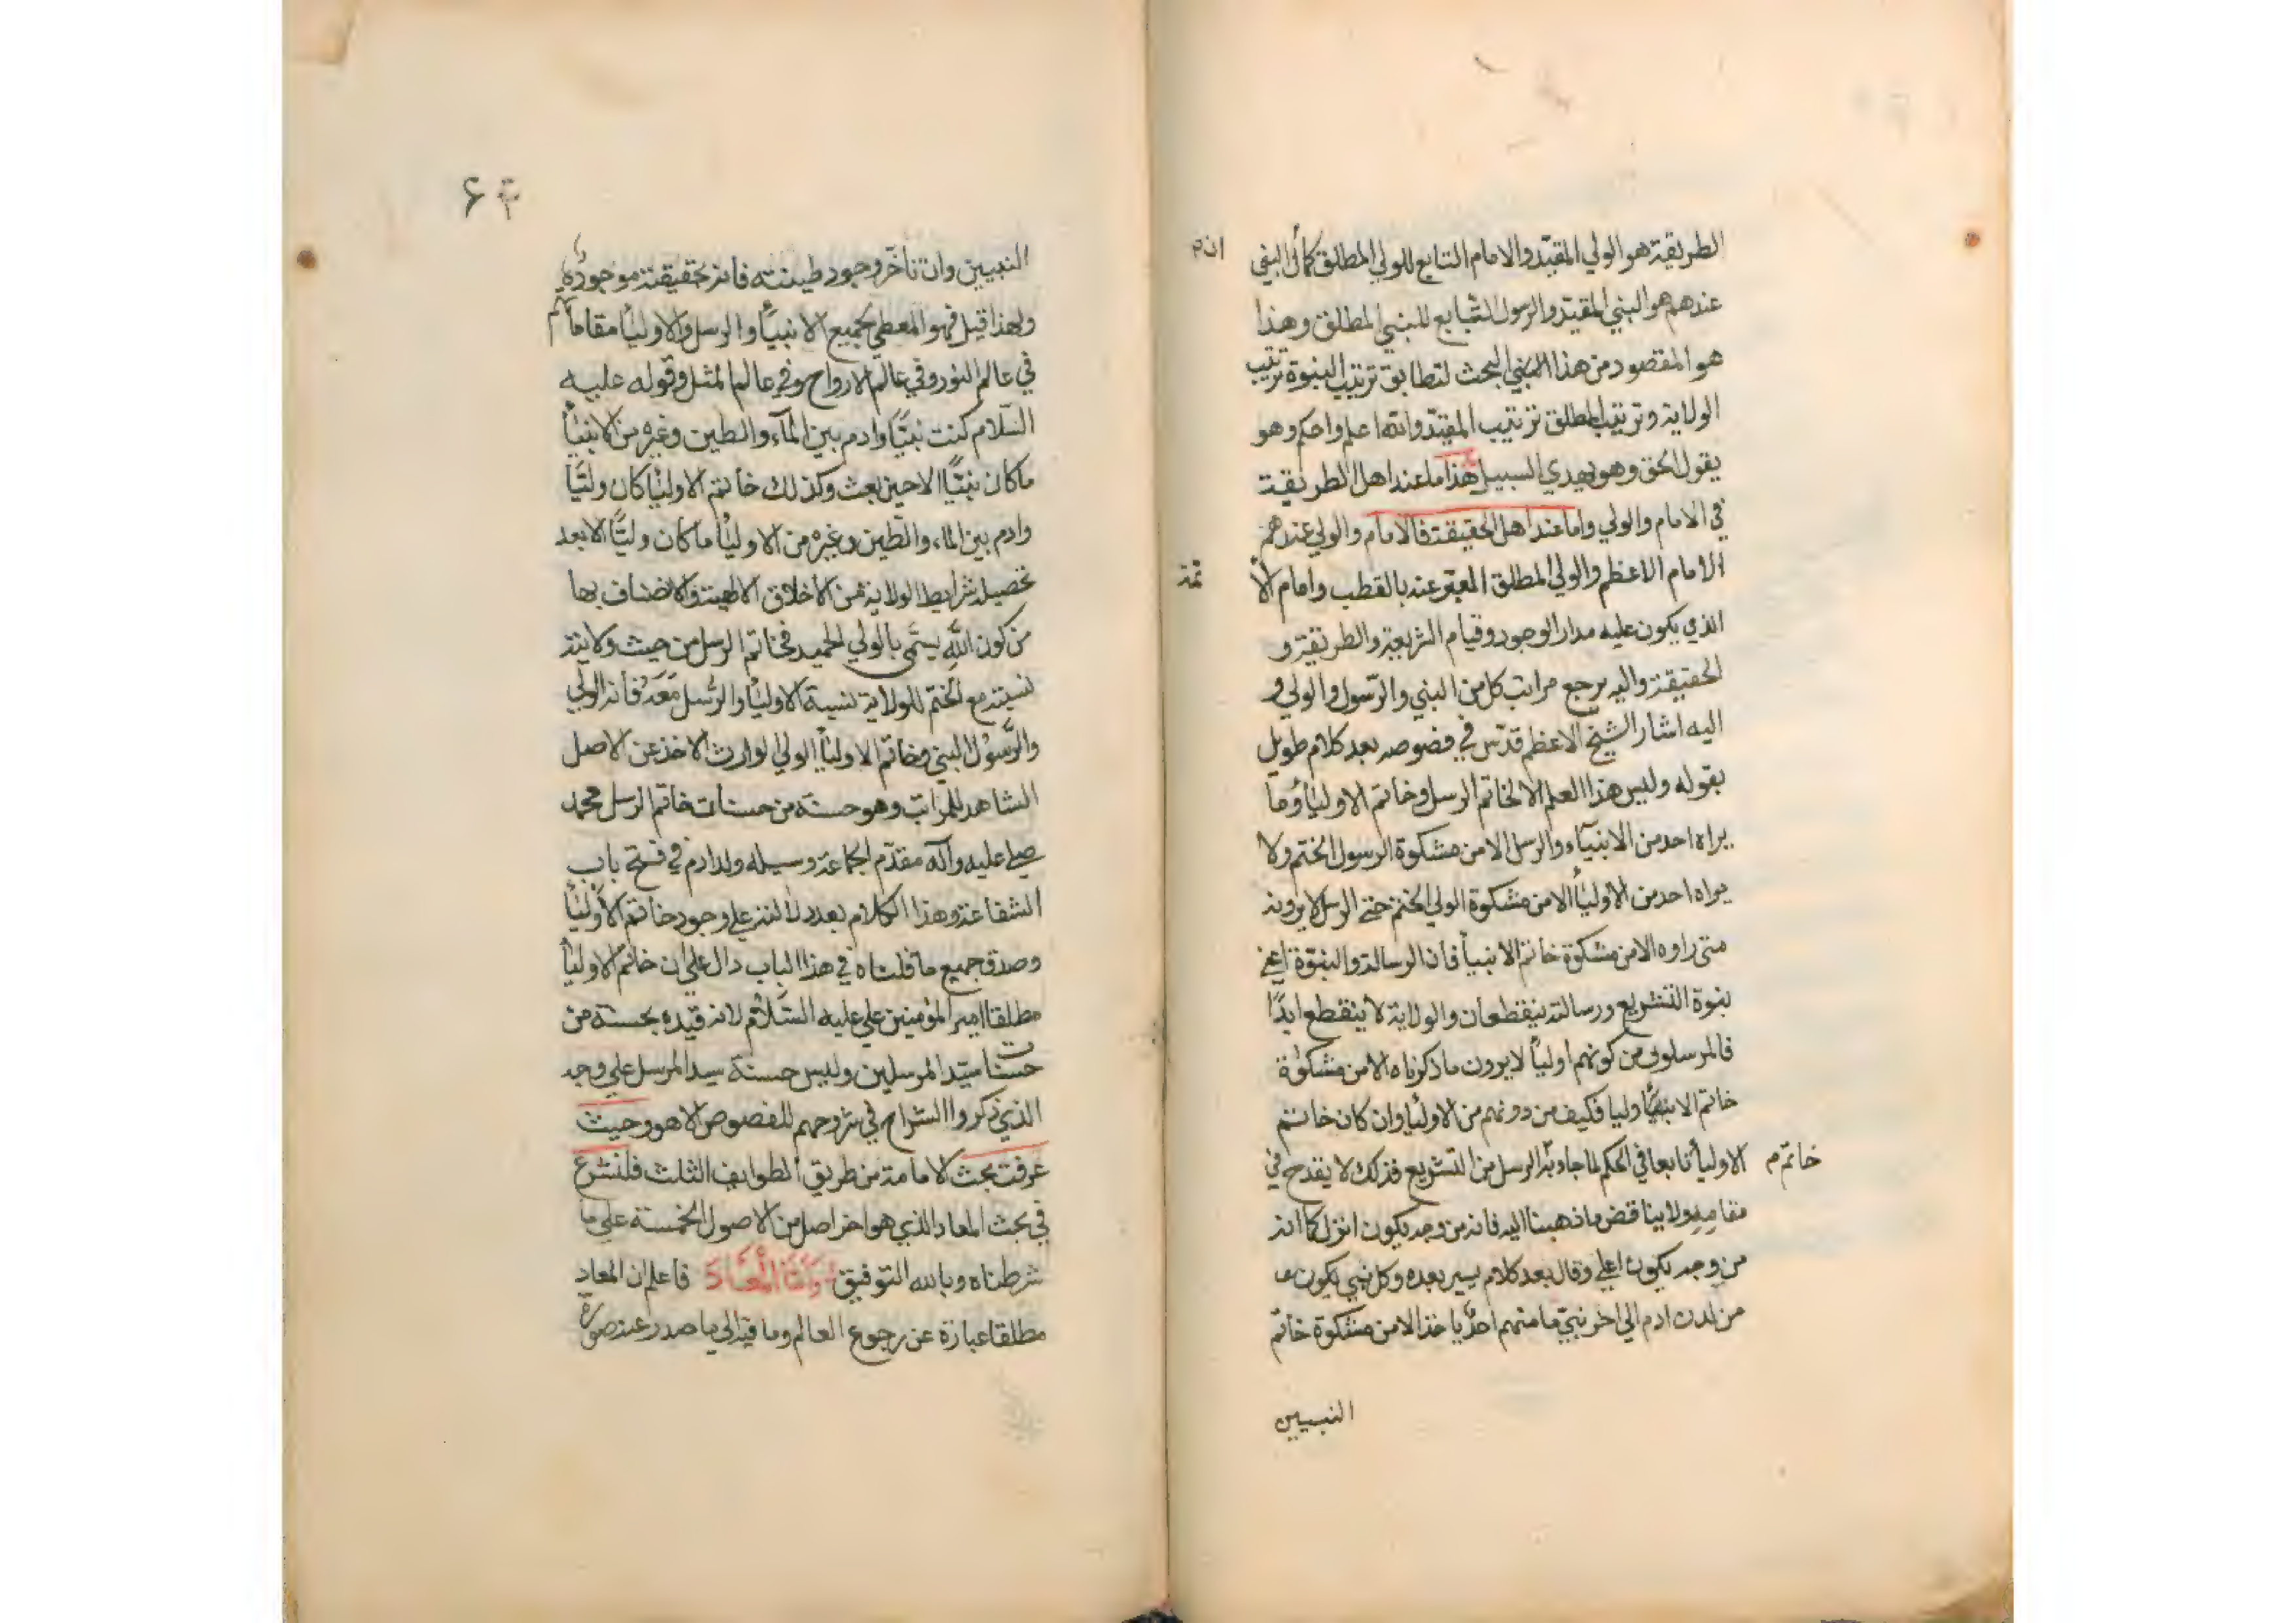 الطريقة هو الولي المقيد والامام التابع للولي المطلق كما ان النبي
ان م
عندهم هو النبي المقيد والرسول التابع للنبي المطلق وهذا
هو المقصود من هذا البحث لتطابق ترتيب النبوة ترتيب
الولاية وترتيب المطلق ترتيب المقيد والله اعلم واحكم وهو
يقول الحق وهو يهدي السبيل هذا ما عند اهل الطريقة
في الامام والولي واما عند اهل الحقيقة فالامام والولي عندهم
الامام الاعظم والولي المطلق المعبر عنه بالقطب وامام الا
ئمة
الذي يكون عليه مدار الوجود وقيام الشريعة والطريقة و
الحقيقة واليه يرجع مراتب كل من النبي والرسول والولي و
اليه اشار الشيخ الاعظم قدس في فصوصه بعد كلام طويل
بقوله وليس هذا العلم الا لخاتم الرسل وخاتم الاولياء وما
يراه احد من الانبياء والرسل الا من مشكوة الرسول الختم ولا
يراه احد من الاولياء الا من مشكوة الولي الختم حتى الرسل لا يرونه
متى راوه الا من مشكوة خاتم الانبياء فان الرسالة والنبوة اعني
نبوة التشريع ورسالته ينقطعان والولاية لا ينقطع ابدًا
فالمرسلون من كونهم اولياء لا يرون ما ذكرناه الا من مشكوة
خاتم الاولياء فكيف من دونهم من الاولياء وان كان خاتم
خاتم م
الاولياء تابعا في الحكم لما جاء به الرسل من التشريع فذلك لا يقدح في
مقامه ولا يناقض ما ذهبنا اليه فانه من وجه يكون انزل كما انه
من وجه يكون اعلى وقال بعد كلام يسير بعده وكل نبي يكون
من لدن ادم الى اخر نبي ما منهم احد ياخذ الا من مشكوة خاتم
النبيين
۶
النبيين وان تاخر وجود طينته فانه بحقيقته موجود
ولهذا قيل فهو المعطي لجميع الانبياء والرسل والاولياء مقاماتهم
في عالم النور وفي عالم الارواح وفي عالم المثل وقوله عليه
السلام كنت نبيًا وادم بين الماء والطين وغيره من الانبياء
ما كان نبيًا الا حين بعث وكذلك خاتم الاولياء كان وليًا
وادم بين الماء والطين وغيره من الاولياء ما كان وليًا الا بعد
تحصيله شرايط الولاية من الاخلاق الالهية والاتصاف بها
من كون الله يسمى بالولي الحميد فخاتم الرسل من حيث ولايته
نسبته مع الختم للولاية نسبة الاولياء والرسل معه فانه الولي
والرسول النبي وخاتم الاولياء الولي الوارث الاخذ عن الاصل
الشاهد للمراتب وهو حسنة من حسنات خاتم الرسل محمد
صلى عليه وآله مقدم الجماعة وسيله ولد ادم في فتح باب
الشفاعة وهذا الكلام بعد دلالته على وجود خاتم الاولياء
وصدق جميع ما قلناه في هذا الباب دال على ان خاتم الاولياء
مطلقا امير المؤمنين علي عليه السلام لانه قيده بحسنة من
حسنات سيد المرسلين وليس حسنة سيد المرسل على وجه
الذي ذكروا الشراح في شروحهم للفصوص الا هو وحيث
عرفت بحث الامامة من طريق الطوايف الثلث فلنشرع
في بحث المعاد الذي هو اخر اصل من الاصول الخمسة على ما
شرطناه وبالله التوفيق وامّا المعاد فاعلم ان المعاد
مطلقا عبارة عن رجوع العالم وما فيه الى ما صدر عنه صورة